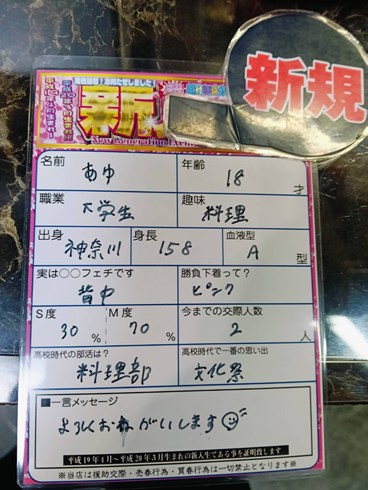 新規
新
New Generation
名前
あゆ
年齢
18
才
職業
大学生
趣味
料理
出身
神奈川
身長
158
血液型
A
型
実は○○フェチです
背中
勝負下着って?
ピンク
S度
30
%
M度
70
%
今までの交際人数
2
人
高校時代の部活は?
料理部
高校時代で一番の思い出
文化祭
■一言メッセージ
よろしくおねがいします
平成19年4月〜平成20年3月生まれの新入生である事を証明致します。
※当店は援助交際・売春行為・買春行為は一切禁止となります※